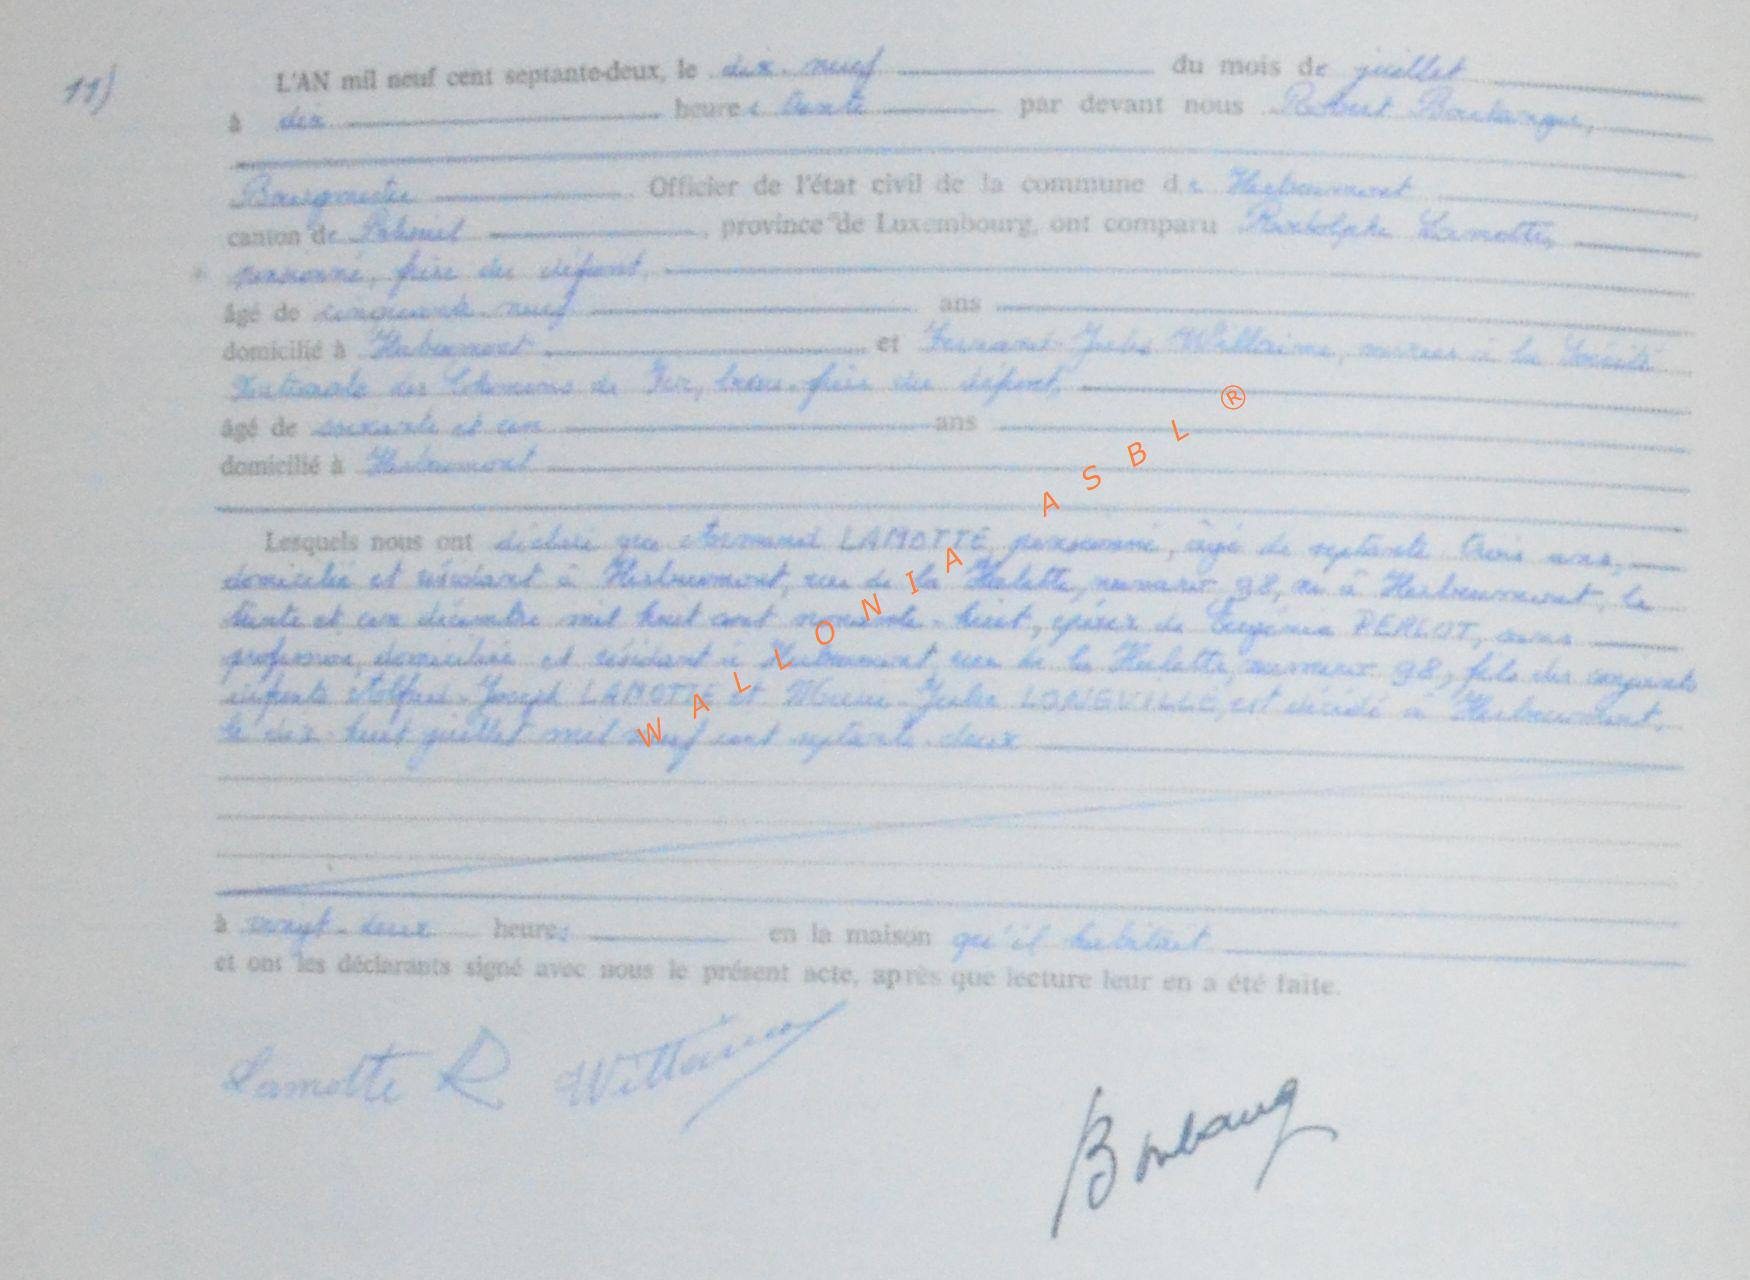 11)
L'AN mil neuf cent septante-deux, le dix-neuf du mois de juillet
à dix heures trente par devant nous Robert Boulanger,
Bourgmestre Officier de l'état civil de la commune de Herbeumont
canton de Paliseul, province de Luxembourg, ont comparu Rodolphe Lamotte,
pensionné, frère du défunt,
âgé de cinquante-neuf ans
domicilié à Herbeumont et Fernand-Jules Willaime, à la Société
Nationale des Chemins de Fer, beau-frère du défunt,
âgé de soixante et un ans
domicilié à Herbeumont
Lesquels nous ont déclaré que Normand LAMOTTE, pensionné, âgé de septante trois ans,
domicilié et résidant à Herbeumont, rue de la Hulette, numéro 98, né à Herbeumont, le
trente et un décembre mil huit cent nonante-huit, époux de Eugénie PERLOT, sans
profession, domiciliée et résidant à Herbeumont, rue de la Hulette, numéro 98, fils des conjoints
défunts Alfred-Joseph LAMOTTE et Marie-Julie LONGVILLE, est décédé à Herbeumont,
le dix-huit juillet mil neuf cent septante-deux
à vingt-deux heures en la maison qu'il habitait
et ont les déclarants signé avec nous le présent acte, après que lecture leur en a été faite.
Lamotte R Willaime
Boulang
WALLONIA ASBL ®